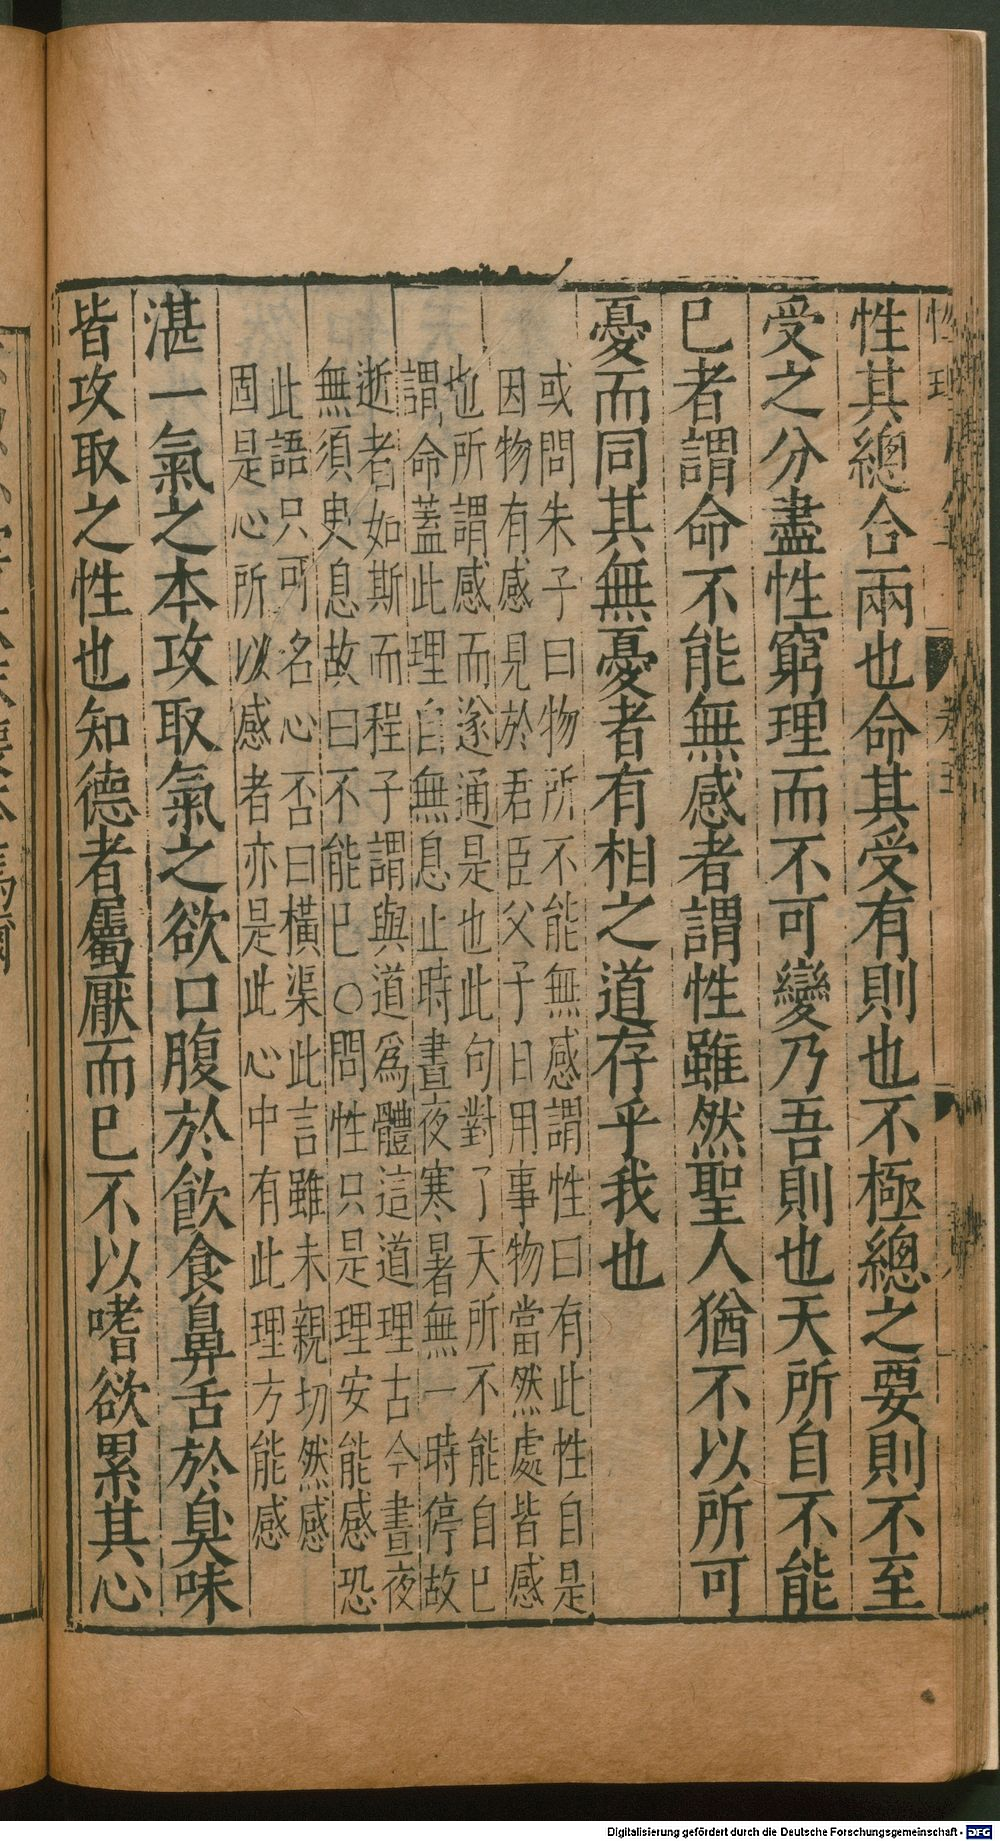 性其總合兩也命其受有則也不極總之要則不至
受之分盡性窮理而不可變乃吾則也天所自不能
已者謂命不能無感者謂性雖然聖人猶不以所可
憂而同其無憂者有相之道存乎我也
或問朱子曰物所不能無感謂性曰有此性自是
因物有感見於君臣父子日用事物當然處皆感
也所謂感而遂通是也此句對了天所不能自已
謂命蓋此理自無息止時晝夜寒暑無一時停故
逝者如斯而程子謂與道爲體這道理古今晝夜
無須臾息故曰不能已○問性只是理安能感恐
此語只可名心否曰橫渠此言雖未親切然感
固是心所以感者亦是此心中有此理方能感
湛一氣之本攻取氣之欲口腹於飲食鼻舌於臭味
皆攻取之性也知德者屬厭而已不以嗜欲累其心
Digitalisierung gefördert durch die Deutsche Forschungsgemeinschaft - DFG